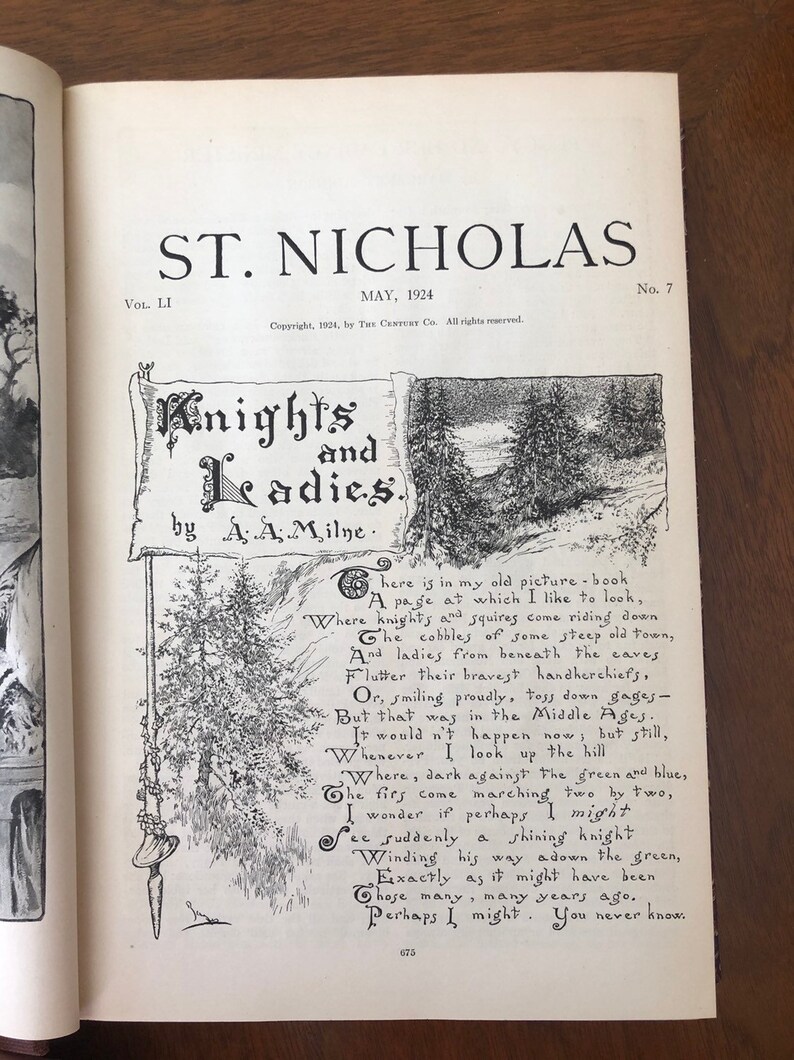 ST. NICHOLAS
VOL. LI
MAY, 1924
No. 7
Copyright, 1924, by THE CENTURY CO. All rights reserved.
Knights
and
Ladies.
by A. A. Milne.
There is in my old picture-book
A page at which I like to look,
Where knights and squires come riding down
The cobbles of some steep old town,
And ladies from beneath the eaves
Flutter their bravest handkerchiefs,
Or, smiling proudly, toss down gages—
But that was in the Middle Ages.
It would n't happen now; but still,
Whenever I look up the hill
Where, dark against the green and blue,
The firs come marching two by two,
I wonder if perhaps I might
See suddenly a shining knight
Winding his way adown the green,
Exactly as it might have been
Those many, many years ago.
Perhaps I might. You never know.
675